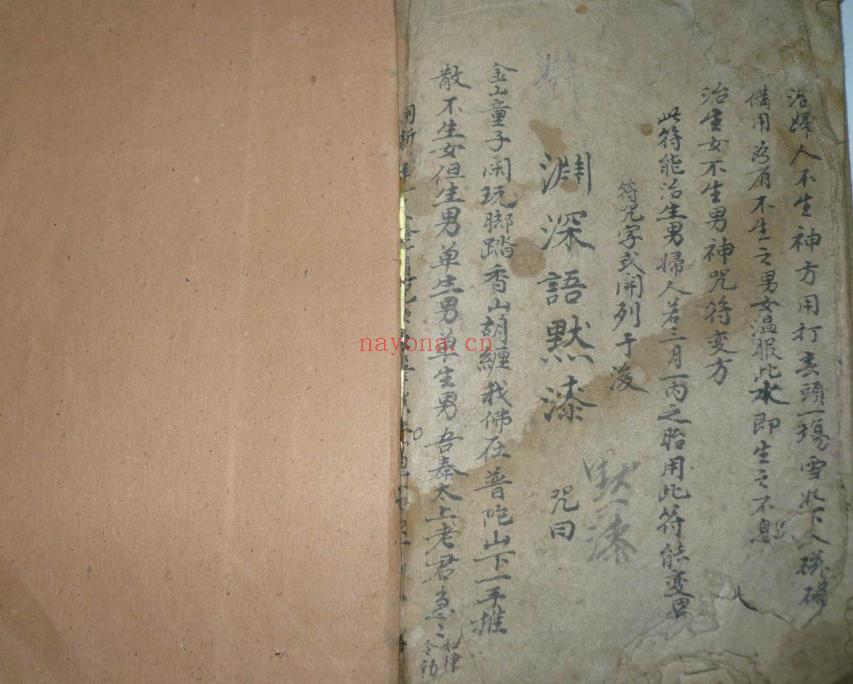 治婦人不生神方用打春頭一塲雪水下入硃碌
備用為有不生之男女温服此水即生之不息
治生女不生男神咒符变方
此符能治生男婦人若三月一內之胎用此符能変男
符咒字式開列于後
淵深語默漆 咒曰
默漆
金山童子閙玩腳踏香山胡纏我佛在普陀山下一手推
散不生女但生男單生男單生男吾奉太上老君急〻如律令勅
nayona.cn